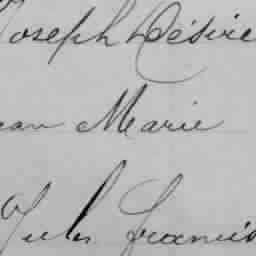 Joseph Désiré
ean Marie
Jules Francis